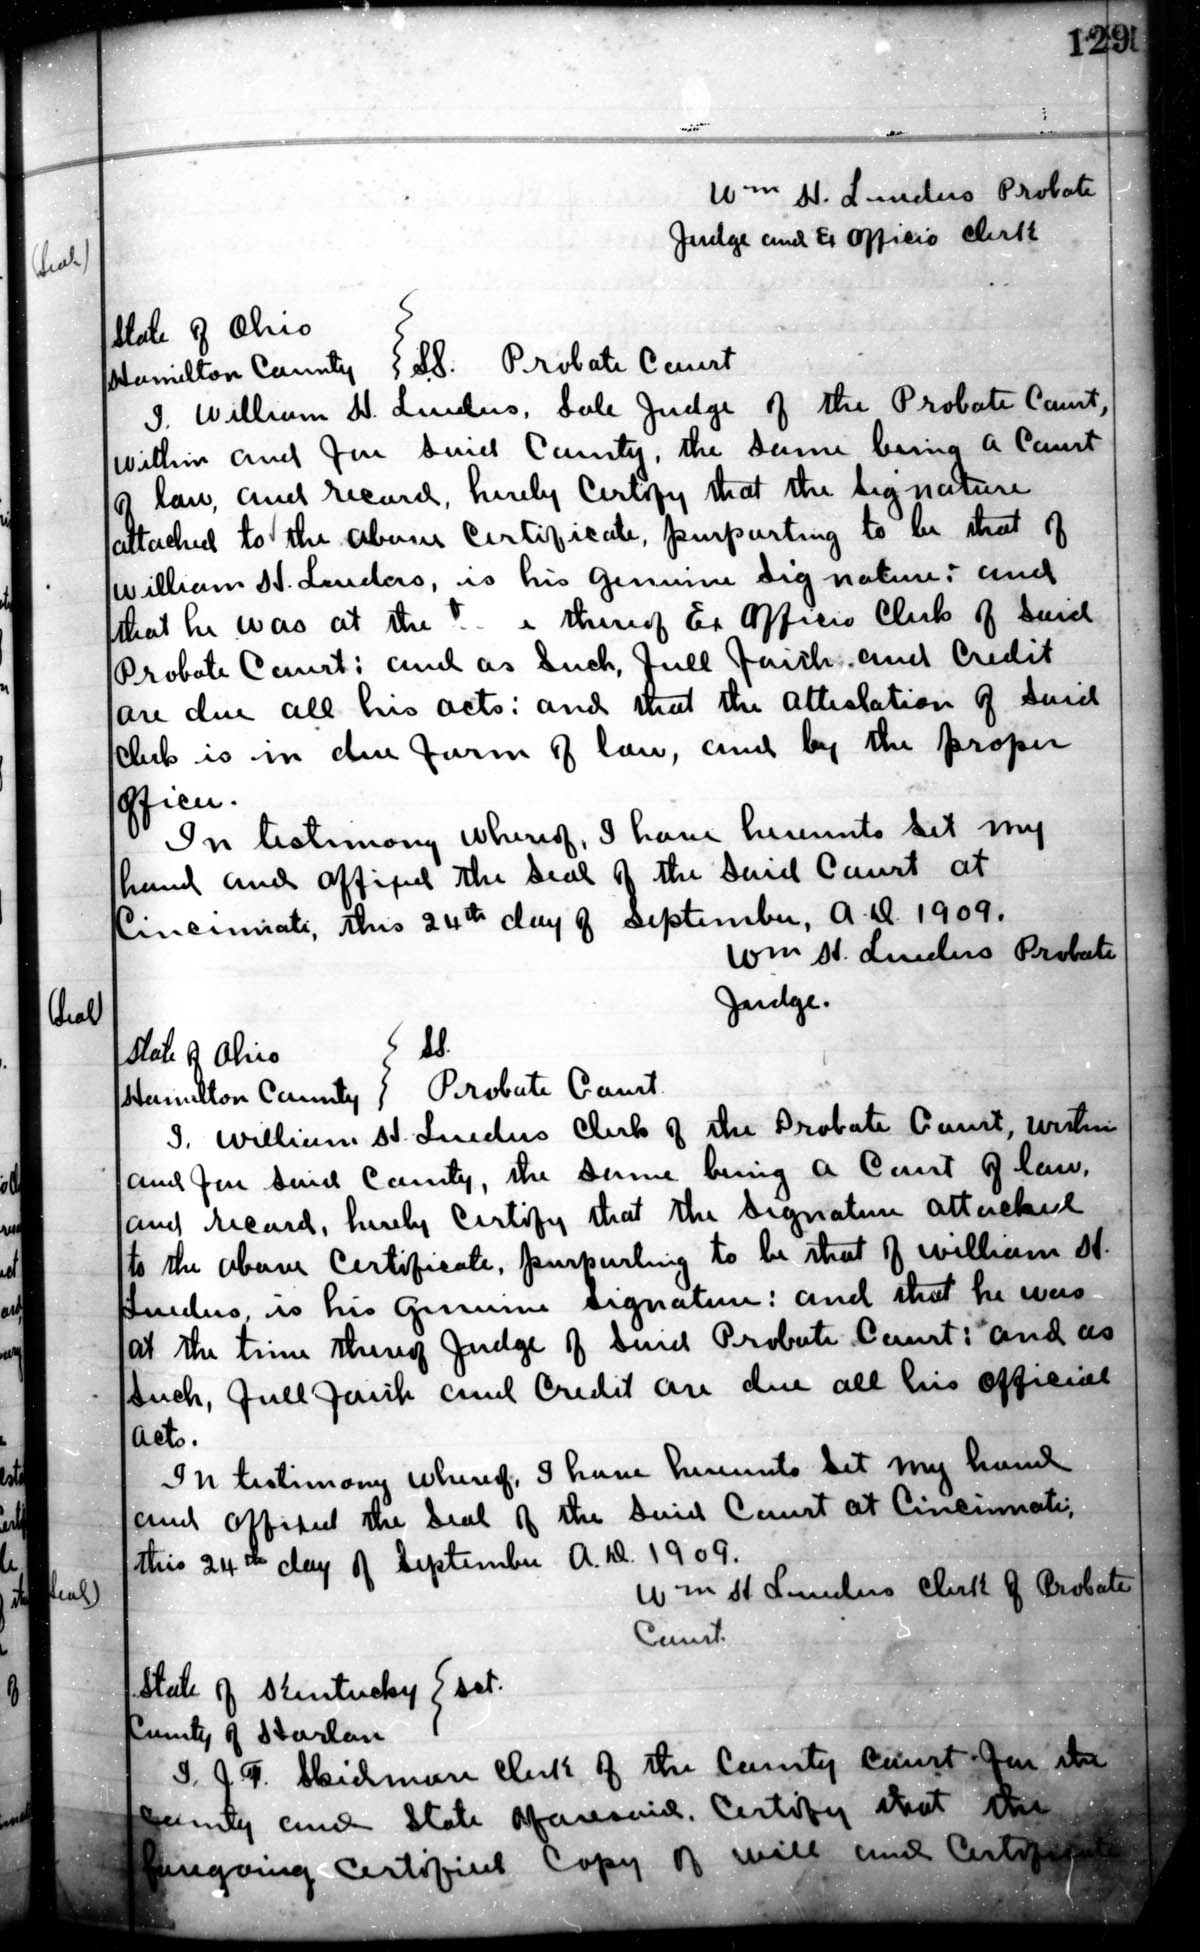 129
Wm H. Lueders Probate
Judge and Ex Officio Clerk
(Seal)
State of Ohio
Hamilton County } SS. Probate Court
I, William H. Lueders, Sole Judge of the Probate Court,
within and for said County, the same being a Court
of law, and record, hereby Certify that the signature
attached to the above Certificate, purporting to be that of
William H. Lueders, is his genuine signature: and
that he was at the thereof Ex Officio Clerk of said
Probate Court: and as such, full faith and Credit
are due all his acts: and that the attestation of said
Clerk is in due form of law, and by the proper
officer.
In testimony whereof, I have hereunto set my
hand and affixed the seal of the said Court at
Cincinnati, this 24th day of September, A.D. 1909.
Wm H. Lueders Probate
Judge.
(Seal)
State of Ohio } SS.
Hamilton County } Probate Court
I, William H. Lueders Clerk of the Probate Court, within
and for said County, the same being a Court of law,
and record, hereby Certify that the signature attached
to the above Certificate, purporting to be that of William H.
Lueders, is his genuine signature: and that he was
at the time thereof Judge of said Probate Court: and as
such, full faith and Credit are due all his official
acts.
In testimony whereof, I have hereunto set my hand
and affixed the seal of the said Court at Cincinnati,
this 24th day of September A.D. 1909.
(Seal)
Wm H Lueders Clerk of Probate
Court.
State of Kentucky } sct.
County of Harlan
I, J. F. Skidmore Clerk of the County Court for the
County and State aforesaid, Certify that the
foregoing Certified Copy of will and Certificate